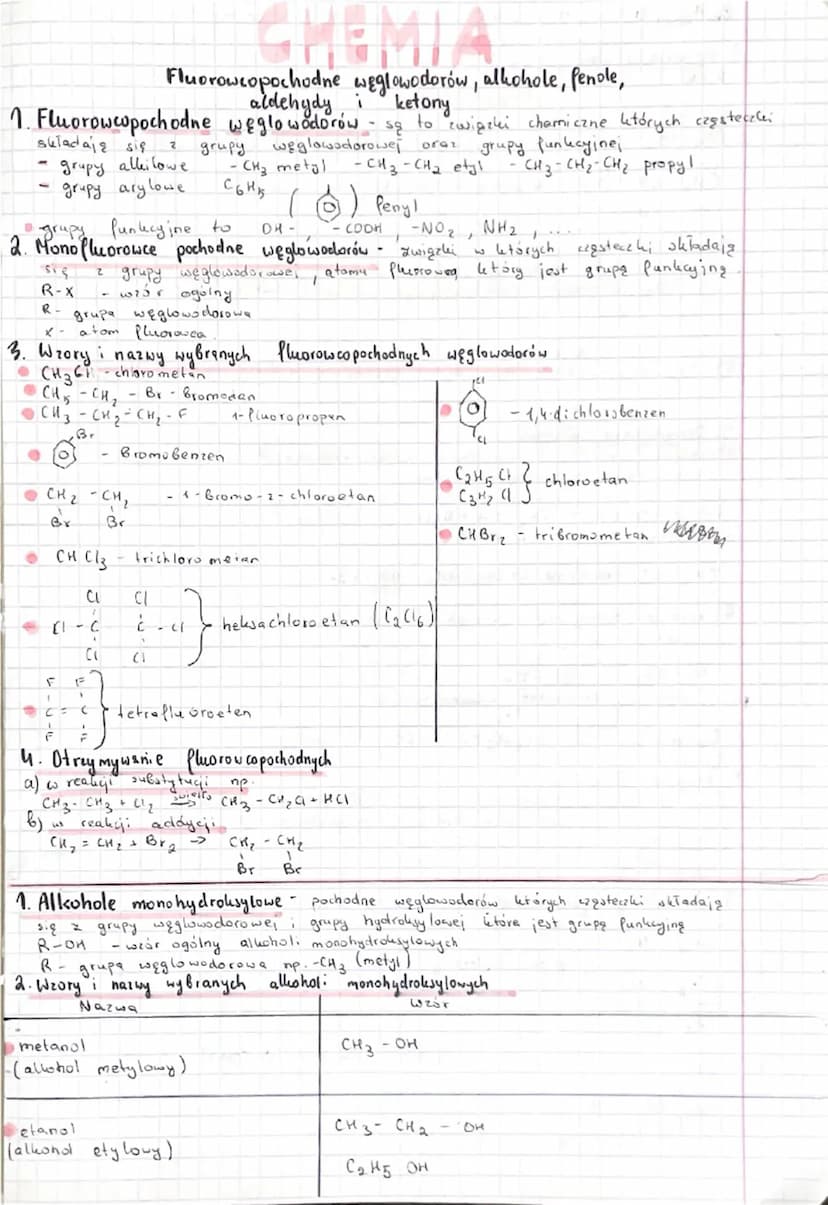 CHEMIA
Fluorowcopochodne węglowodorów, alkohole, fenole,
aldehydy i ketony
1. Fluorowcopochodne węglowodorów - są to związki chemiczne których cząsteczki
składają się z grupy węglowodorowej oraz grupy funkcyjnej
- grupy alkilowe - CH3 metyl - CH3 - CH2 etyl - CH3 - CH2 - CH2 propyl
- grupy arylowe C6H5 ( ) fenyl
grupy funkcyjne to OH - , - COOH , - NO2 , NH2 , ...
2. Monofluorowce pochodne węglowodorów - związki w których cząsteczki składają
się z grupy węglowodorowej , atomu fluorowca który jest grupą funkcyjną
R-X - wzór ogólny
R - grupa węglowodorowa
x - atom fluorowca
3. Wzory i nazwy wybranych fluorowcopochodnych węglowodorów
CH3Cl - chlorometan
CH5 - CH2 - Br - Bromoetan
CH3 - CH2 - CH2 - F 1-fluoropropen
Br
- Bromobenzen
CH2 - CH2 - 1-Bromo-2-chloroetan
Br Br
CHCl3 - trichlorometan
Cl Cl
Cl - C C - Cl } heksachloroetan (C2Cl6)
Cl Cl
F F
C = C } tetrafluoroeten
F F
Cl
- 1,4-dichlorobenzen
Cl
C2H5 Cl } chloroetan
C3H2 Cl
CHBr2 - tribromometan
4. Otrzymywanie fluorowcopochodnych
a) w reakcji substytucji np.
CH3 - CH3 + Cl2 światło → CH3 - CH2Cl + HCl
b) w reakcji addycji
CH2 = CH2 + Br2 → CH2 - CH2
Br Br
1. Alkohole monohydroksylowe - pochodne węglowodorów których cząsteczki składają
się z grupy węglowodorowej i grupy hydroksylowej która jest grupą funkcyjną
R-OH - wzór ogólny alkoholi monohydroksylowych
R - grupa węglowodorowa np. -CH3 (metyl)
2. Wzory i nazwy wybranych alkoholi monohydroksylowych
Nazwa Wzór
metanol CH3 - OH
(alkohol metylowy)
etanol CH3 - CH2 - OH
(alkohol etylowy)
C2H5 OH